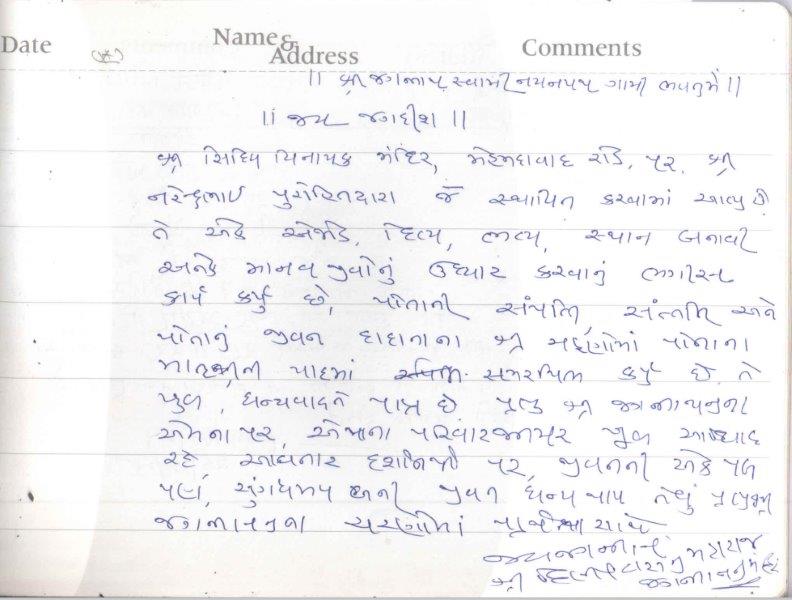 Date
Name &
Address
Comments
|| શ્રી જગન્નાથ સ્વામી નયનપથ ગામી ભવતુમે ||
|| જય જગદીશ ||
શ્રી સિધ્ધિ વિનાયક મંદિર, મહેમદાવાદ રોડ, પર, શ્રી
નરેન્દ્રભાઈ પુરોહિતદ્વારા જે સ્થાપિત કરવામાં આવ્યુ છે
તે એક અજોડ, દિવ્ય, ભવ્ય, સ્થાન બનાવી
અનેક માનવ જીવોનું ઉધ્ધાર કરવાનું ભગીરથ
કાર્ય કર્યુ છે, પોતાની સંપતિ, સંન્તતિ અને
પોતાનું જીવન દાદાના શ્રી ચરણોમાં પોતાના
માતાજીની યાદમાં સમરપિત કર્યુ છે તે
ખુબ, ધન્યવાદને પાત્ર છે પ્રભુ શ્રી જગન્નાથજીની
એમના પર, એમના પરિવારજનપર ખુબ
રહે, આવનાર દર્શનાર્થીઓ પર, જીવનની એક પળ
પણ, સુગંધમય બની જીવન ધન્ય થાય તેવું પ્રભુશ્રી
જગન્નાથજીના ચરણોમાં પ્રાર્થના સાથે
જયજગન્નાથ
શ્રી મહારાજ